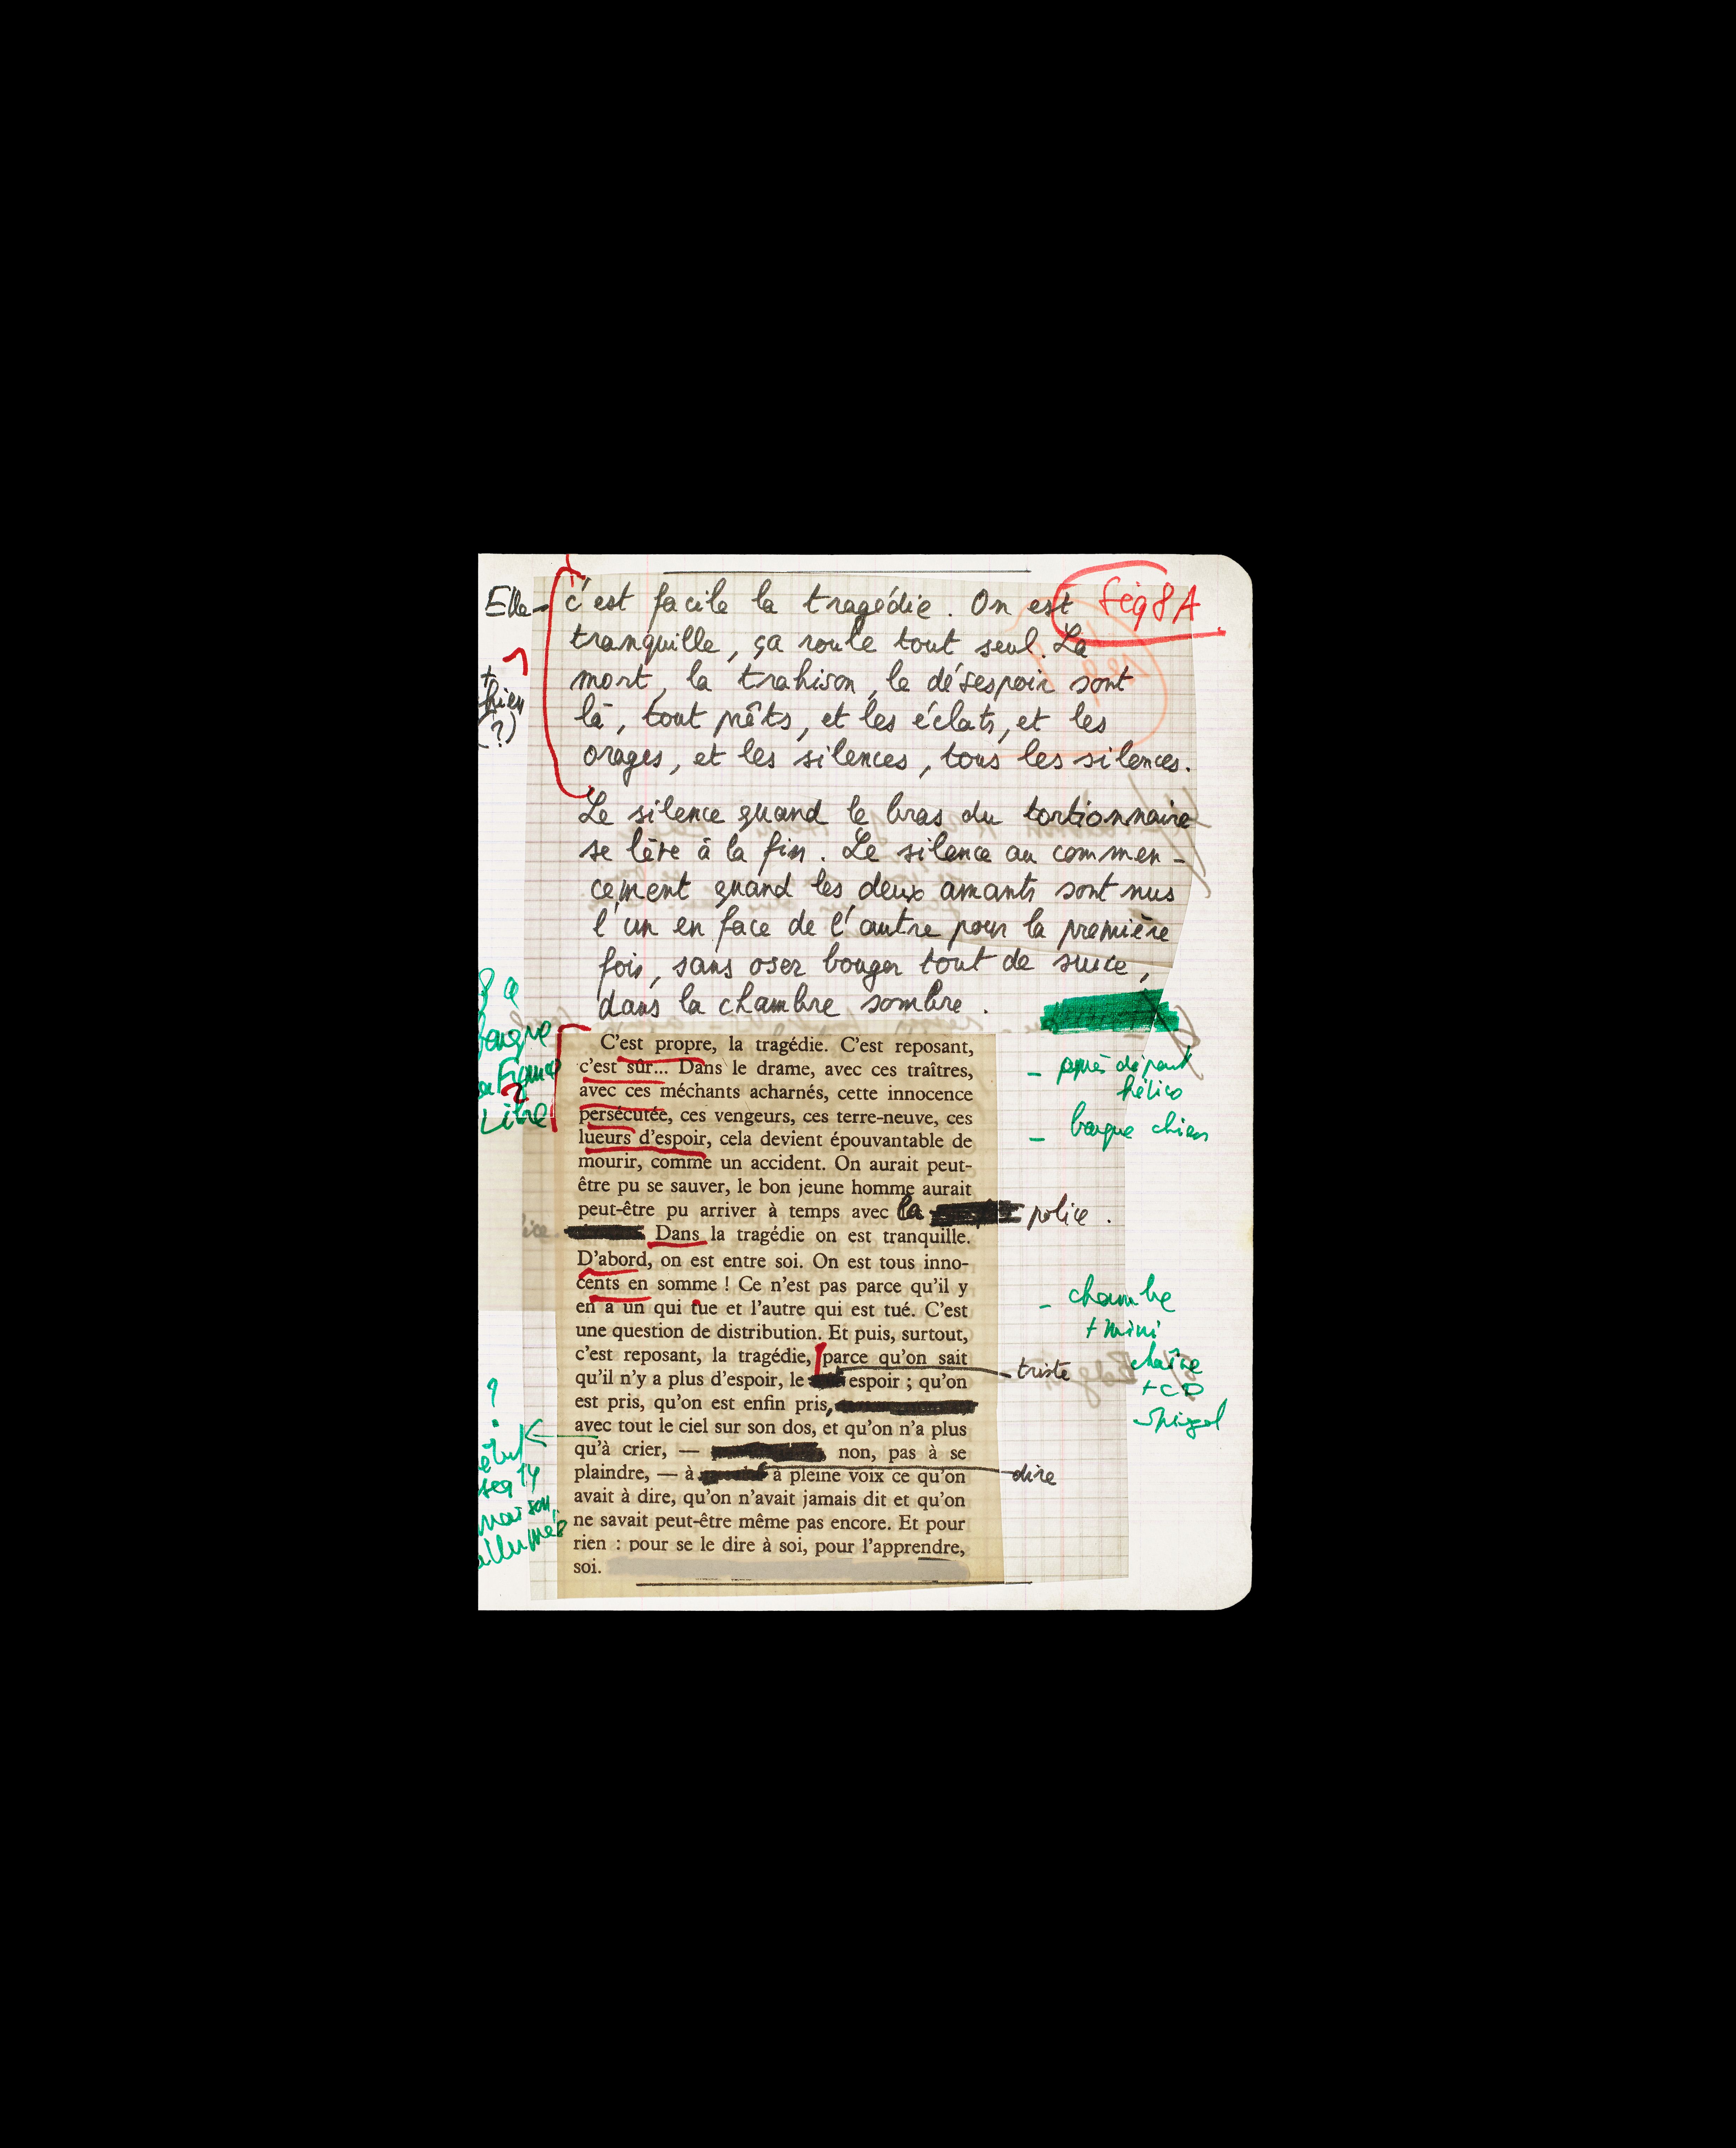 Séq 8A
Elle - c'est facile la tragédie. On est
tranquille, ça roule tout seul. La
mort, la trahison, le désespoir sont
là, tout prêts, et les éclats, et les
orages, et les silences, tous les silences.
+
(?)
Le silence quand le bras du tortionnaire
se lève à la fin. Le silence au commen-
cement quand les deux amants sont nus
l'un en face de l'autre pour la première
fois, sans oser bouger tout de suite,
dans la chambre sombre.
C'est propre, la tragédie. C'est reposant,
c'est sûr... Dans le drame, avec ces traîtres,
avec ces méchants acharnés, cette innocence
persécutée, ces vengeurs, ces terre-neuve, ces
lueurs d'espoir, cela devient épouvantable de
mourir, comme un accident. On aurait peut-
être pu se sauver, le bon jeune homme aurait
peut-être pu arriver à temps avec la police.
Dans la tragédie on est tranquille.
D'abord, on est entre soi. On est tous inno-
cents en somme ! Ce n'est pas parce qu'il y
en a un qui tue et l'autre qui est tué. C'est
une question de distribution. Et puis, surtout,
c'est reposant, la tragédie, parce qu'on sait
qu'il n'y a plus d'espoir, le espoir ; qu'on
triste
est pris, qu'on est enfin pris,
avec tout le ciel sur son dos, et qu'on n'a plus
qu'à crier, — non, pas à se
plaindre, — à à pleine voix ce qu'on
dire
avait à dire, qu'on n'avait jamais dit et qu'on
ne savait peut-être même pas encore. Et pour
rien : pour se le dire à soi, pour l'apprendre,
soi.
Libre
?
- après départ
hélico
- barque chien
- chambre
+ mini
chaîne
+ CD